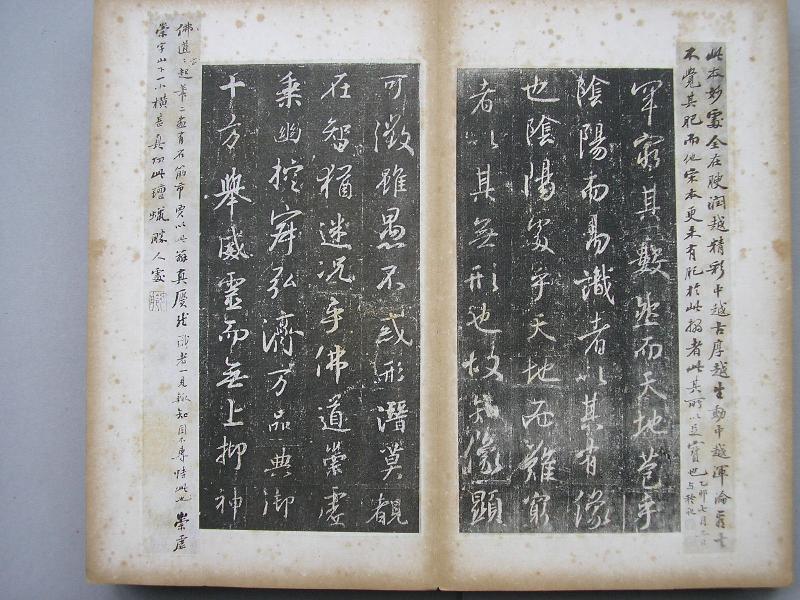 此本妙處全在腴潤越精彩中越古厚越生動中越渾淪
不覺其肥而他宋本更未有肥於此搨者此其所以足寶也乙卯七月
罕窮其數然而天地苞乎
陰陽而易識者以其有像
也陰陽處乎天地而難窮
者以其無形也故知像顯
可徵雖愚不惑形潛莫覩
在智猶迷況乎佛道崇虛
乘幽控寂弘濟万品典御
十方舉威靈而無上抑神
佛道道起筆二畫有石筋市賈以此辨真贗然識者一見輒知固不專恃此也崇虛
崇字山下一小橫甚真初此種蠟勝人處